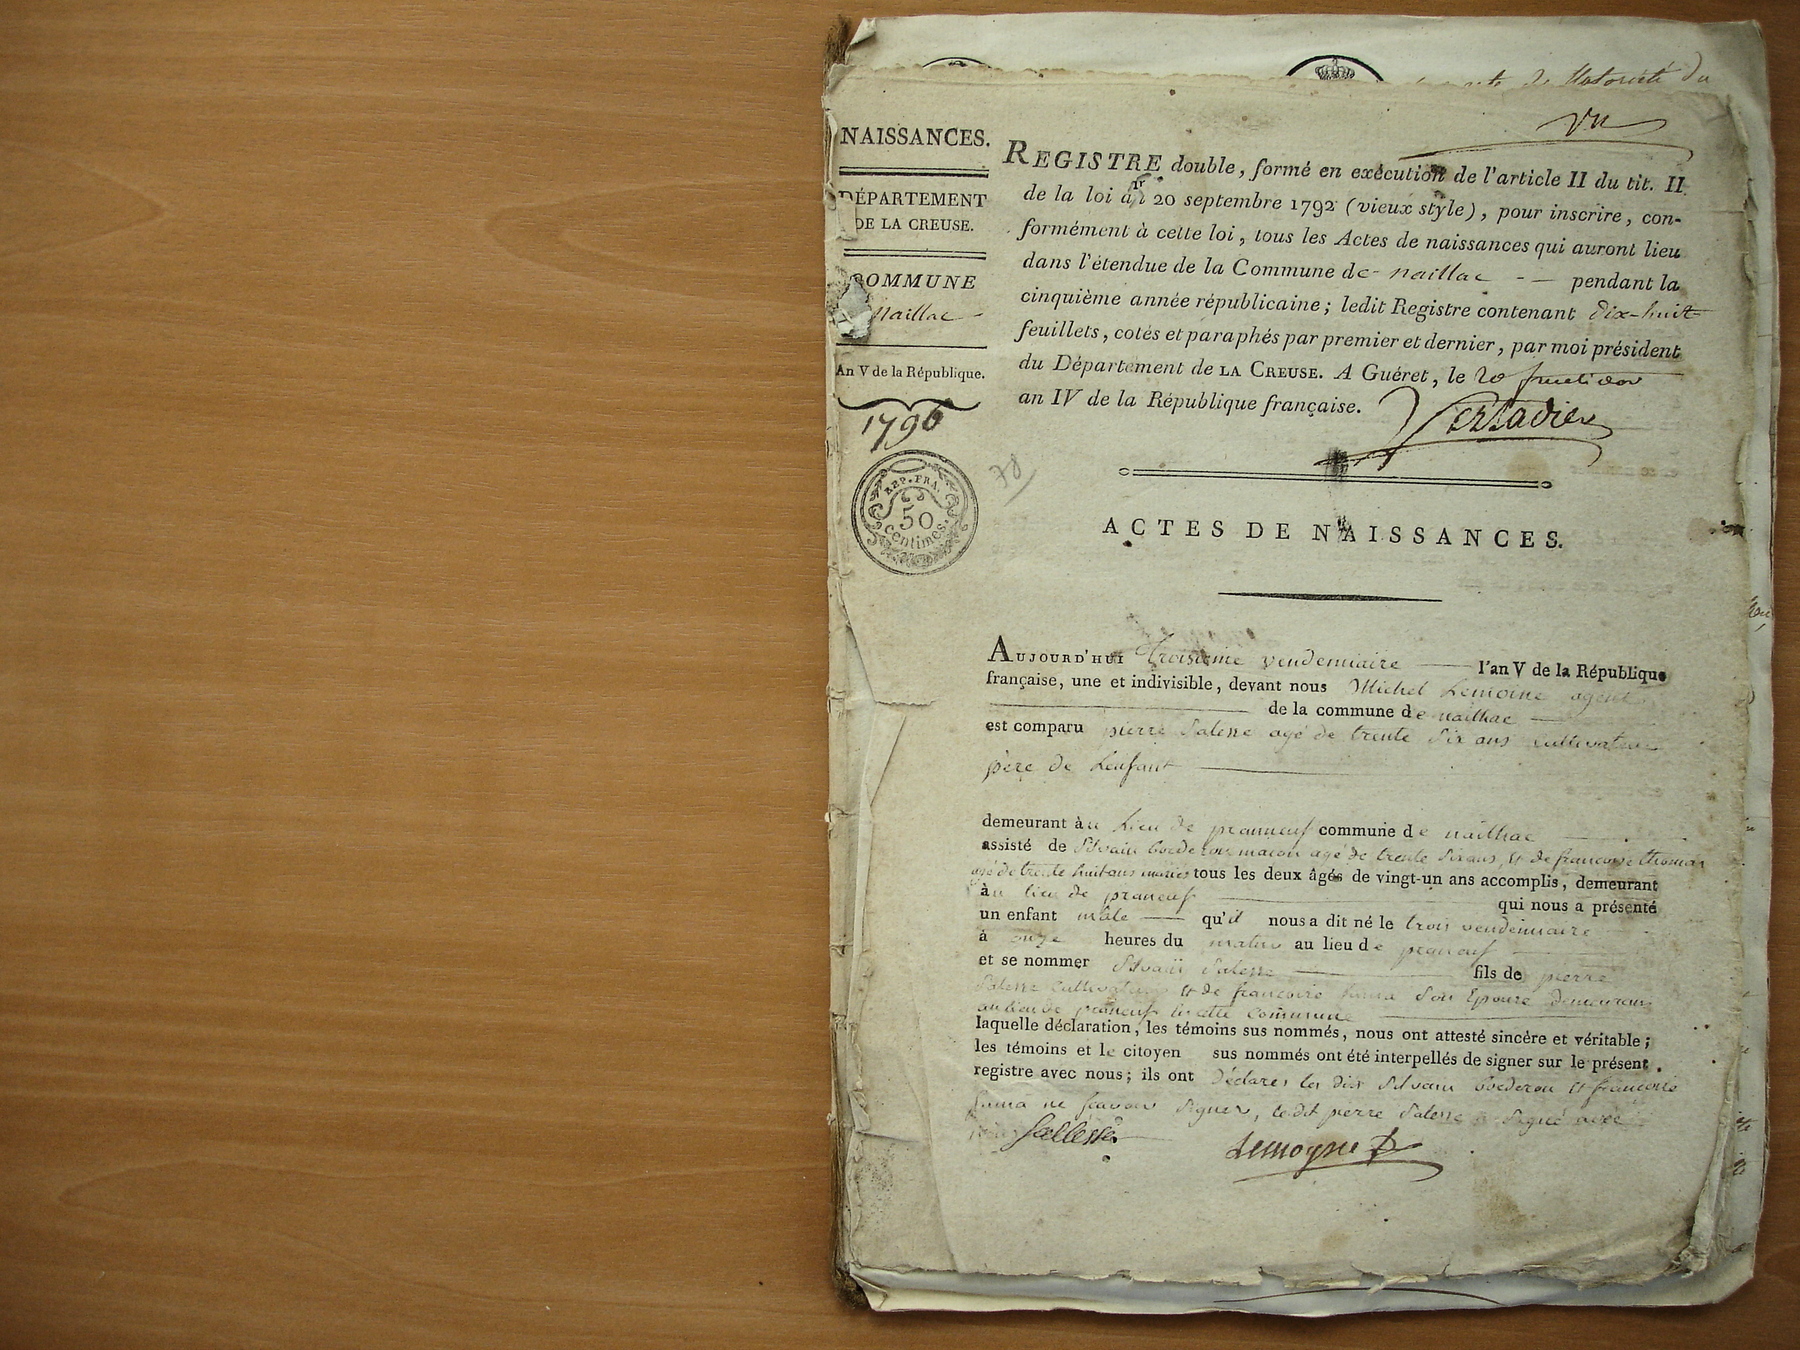 acte de Notoriété du
vu
NAISSANCES.
DÉPARTEMENT
DE LA CREUSE.
COMMUNE
Naillac
An V de la République.
1796
REP. FRA.
50
centimes.
78
REGISTRE double, formé en exécution de l'article II du tit. II
de la loi du 20 septembre 1792 (vieux style), pour inscrire, con-
formément à cette loi, tous les Actes de naissances qui auront lieu
dans l'étendue de la Commune de naillac pendant la
cinquième année républicaine; ledit Registre contenant dix-huit
feuillets, cotés et paraphés par premier et dernier, par moi président
du Département de LA CREUSE. A Guéret, le 20 fructidor
an IV de la République française.
ACTES DE NAISSANCES.
AUJOURD'HUI troisieme vendemiaire l'an V de la République
française, une et indivisible, devant nous Michel Lemoine agent
de la commune de naillac
est comparu pierre Salesse agé de trente six ans cultivateur
père de Lenfant
demeurant au Lieu de praneuf commune de naillac
assisté de Silvain maçon agé de trente six ans, et de francoise thomas
agé de trente huit ans tous les deux âgés de vingt-un ans accomplis, demeurant
au lieu de praneuf qui nous a présenté
un enfant mâle qu'il nous a dit né le trois vendemiaire
à onze heures du matin au lieu de praneuf
et se nommer Silvain Salesse fils de pierre
Salesse cultivateur et de francoise son Epouse demeurant
au lieu de praneuf commune
laquelle déclaration, les témoins sus nommés, nous ont attesté sincère et véritable;
les témoins et le citoyen sus nommés ont été interpellés de signer sur le présent
registre avec nous; ils ont déclarés les dits Silvain et françoise
ne scavoir signer, ledit pierre Salesse a signé avec
nous Sallesse
Lemoyne